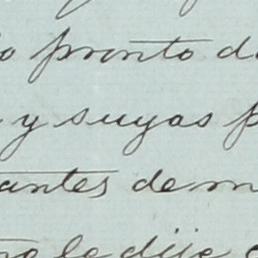 lo pronto de
y suyas p
antes de m
no le dije